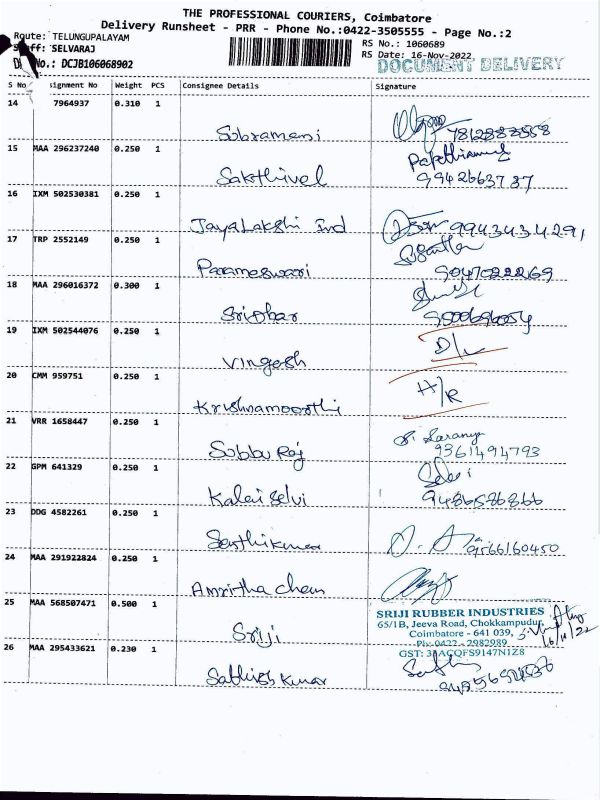 THE PROFESSIONAL COURIERS, Coimbatore
Delivery Runsheet - PRR - Phone No.:0422-3505555 - Page No.:2
Route: TELUNGUPALAYAM
RS No.: 1060689
SELVARAJ
RS Date: 16-Nov-2022
No.: DCJB106068902
DOCUMENT DELIVERY
S No signment No Weight PCS Consignee Details Signature
14 7964937 0.310 1
Subramani 7812887558
15 MAA 296237240 0.250 1
Sakthivel 9942663737
16 IXM 502530381 0.250 1
JayaLakshi Ind 9943434291
17 TRP 2552149 0.250 1
Parameswari 9047022269
18 MAA 296016372 0.300 1
Sridhar
19 IXM 502544076 0.250 1
D/L
Vingesh
20 CMM 959751 0.250 1
H/R
Krishnamoorthi
21 VRR 1658447 0.250 1
Subbu Raj 9361494793
22 GPM 641329 0.250 1
Kalai Selvi 9486586866
23 DDG 4582261 0.250 1
Senthilkumar 9566160450
24 MAA 291922824 0.250 1
Amritha chem
25 MAA 568507471 0.500 1
Sriji
SRIJI RUBBER INDUSTRIES
65/1B, Jeeva Road, Chokkampudur,
Coimbatore - 641 039,
Ph: 0422 - 2982989
GST: 33ACQFS9147N1Z8
16/11/22
26 MAA 295433621 0.230 1
Sathish Kumar